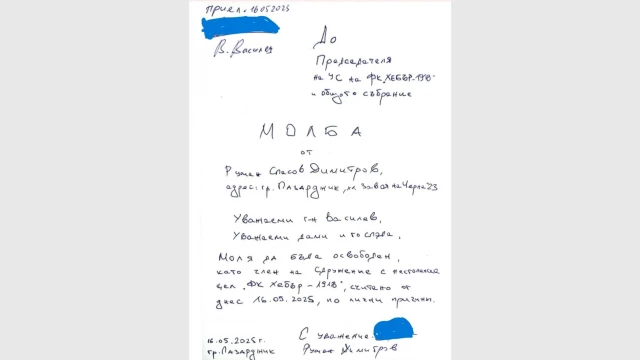 Приел. 16.05.2025
В. Василев
До
Председателя
на УС на ФК "ХЕБЪР-1918"
и общото събрание
МОЛБА
от
Румен Спасов Димитров,
адрес: гр. Пазарджик, ул. Завоя на Черна 23
Уважаеми г-н Василев,
Уважаеми дами и господа,
Моля да бъда освободен,
като член на сдружение с нестопанска
цел "ФК Хебър - 1918", считано от
днес 16.05.2025, по лични причини.
16.05.2025 г.
гр. Пазарджик
С уважение:
Румен Димитров